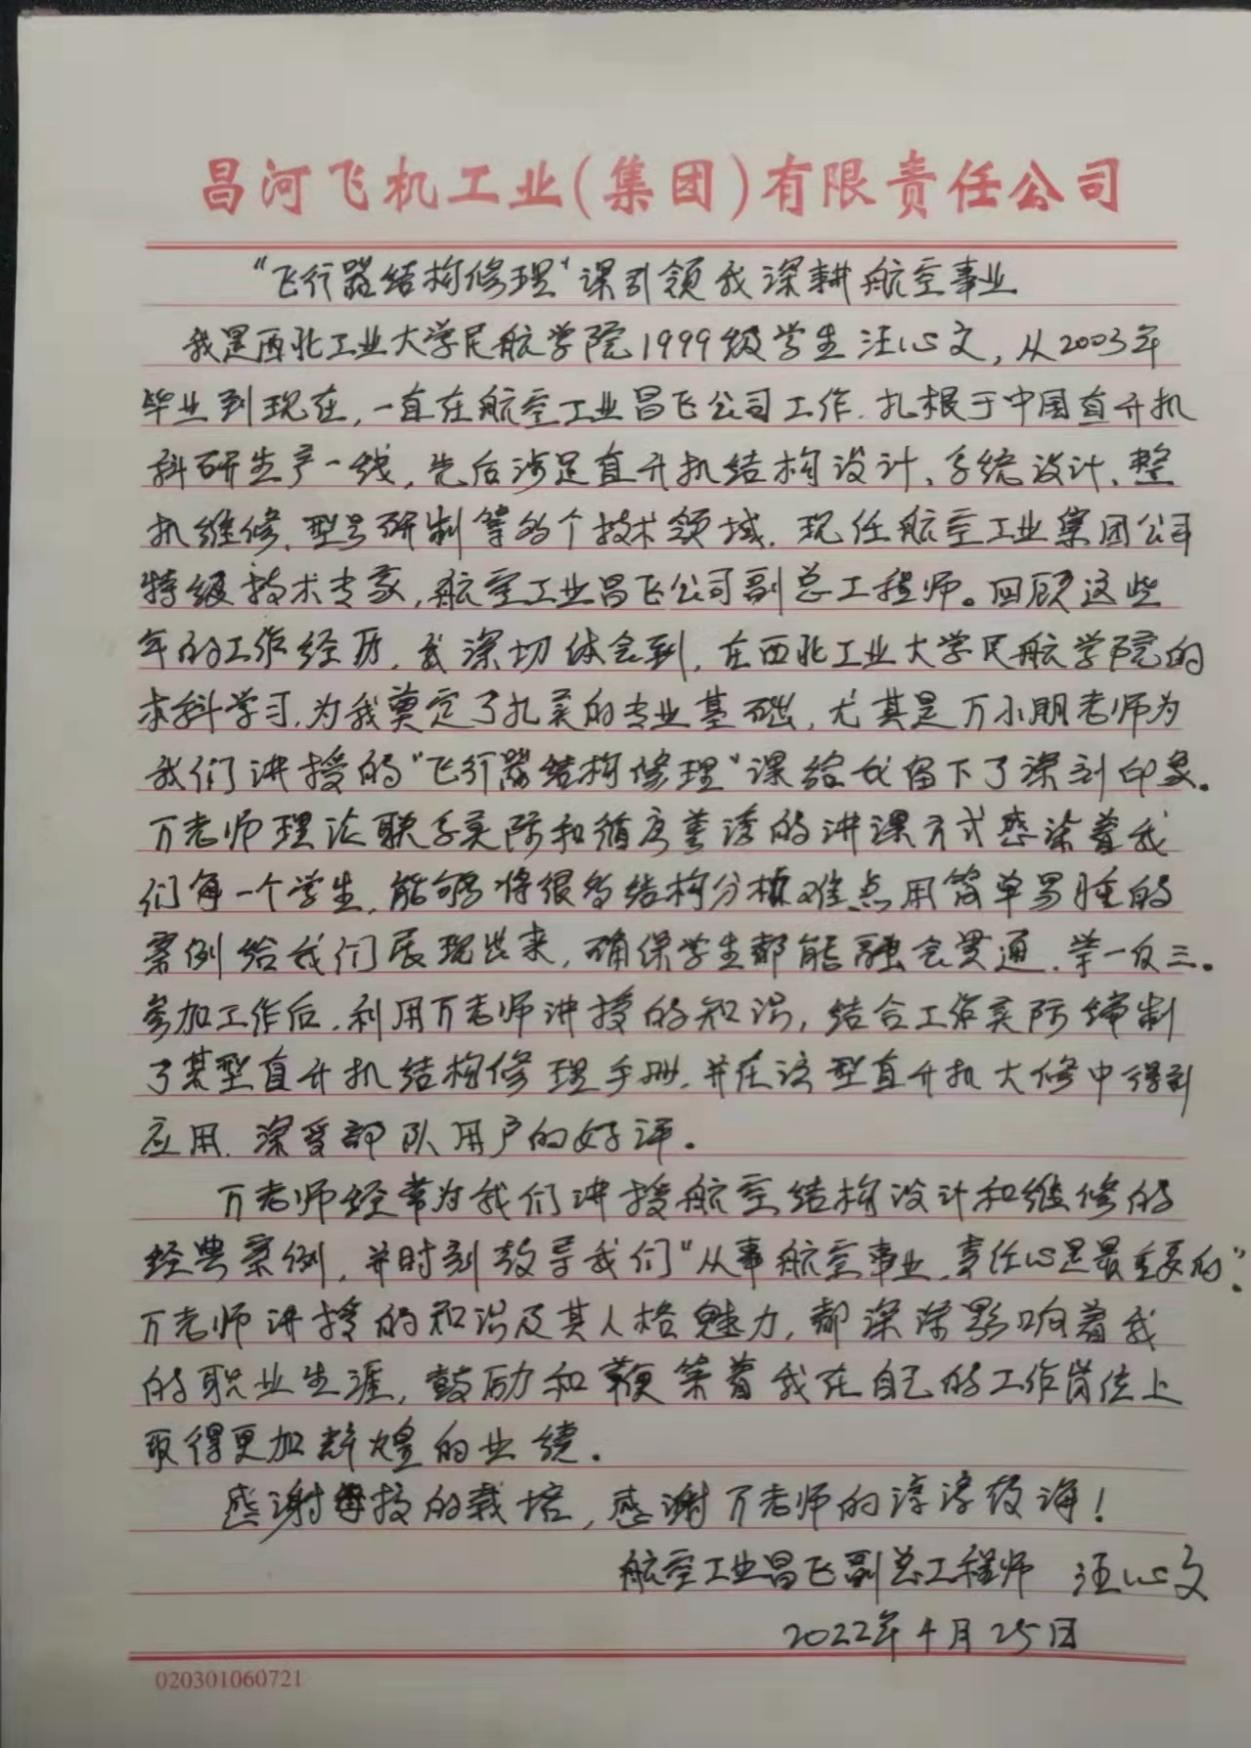 昌河飞机工业(集团)有限责任公司
“飞行器结构修理”课引领我深耕航空事业
我是西北工业大学民航学院1999级学生汪心文,从2003年
毕业到现在,一直在航空工业昌飞公司工作.扎根于中国直升机
科研生产一线,先后涉足直升机结构设计、系统设计、整
机维修、型号研制等多个技术领域.现任航空工业集团公司
特级技术专家,航空工业昌飞公司副总工程师。回顾这些
年的工作经历,我深切体会到,在西北工业大学民航学院的
本科学习,为我奠定了扎实的专业基础,尤其是万小朋老师为
我们讲授的“飞行器结构修理”课给我留下了深刻印象。
万老师理论联系实际和循序善诱的讲课方式感染着我
们每一个学生,能够将很多结构分析难点用简单易懂的
案例给我们展现出来,确保学生都能融会贯通、举一反三。
参加工作后,利用万老师讲授的知识,结合工作实际编制
了某型直升机结构修理手册,并在该型直升机大修中得到
应用,深受部队用户的好评。
万老师经常为我们讲授航空结构设计和维修的
经典案例,并时刻教导我们“从事航空事业,责任心是最重要的”.
万老师讲授的知识及其人格魅力,都深深影响着我
的职业生涯,鼓励和鞭策着我在自己的工作岗位上
取得更加辉煌的业绩。
感谢母校的栽培,感谢万老师的谆谆教诲!
航空工业昌飞副总工程师 汪心文
2022年4月25日
020301060721